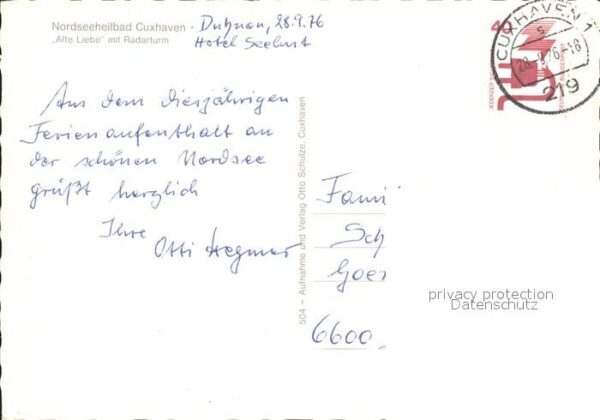 Nordseeheilbad Cuxhaven -
„Alte Liebe" mit Radarturm
Duhnen, 28.9.76
Hotel Seelust
Aus dem diesjährigen
Ferienaufenthalt an
der schönen Nordsee
grüßt herzlich
Ihre
Otti Hegmar
504 – Aufnahme und Verlag Otto Schulze, Cuxhaven
Fami
Sch
Goe
6600
CUXHAVEN 1
s
28.9.76-18
219
JEDERZEIT
privacy protection
Datenschutz